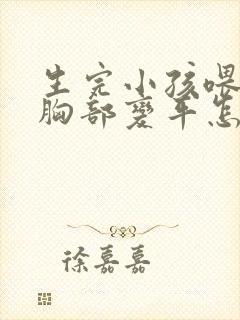 生完小孩喂
胸部变平怎
徐嘉嘉